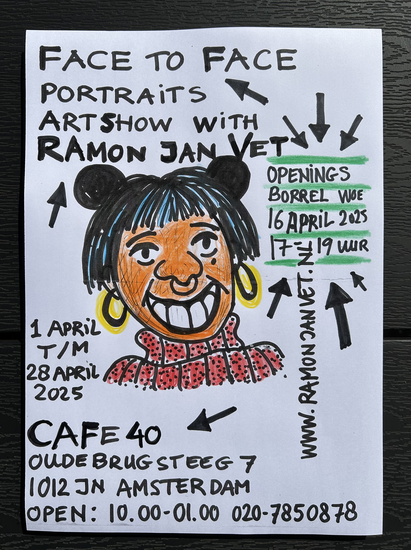 FACE TO FACE
PORTRAITS
ARTSHOW WITH
RAMON JAN VET
OPENINGS
BORREL WOE
16 APRIL 2025
17 - 19 UUR
WWW.RAMONJANVET.NL
1 APRIL
T/M
28 APRIL
2025
CAFE 40
OUDEBRUGSTEEG 7
1012 JN AMSTERDAM
OPEN: 10.00-01.00 020-7850878